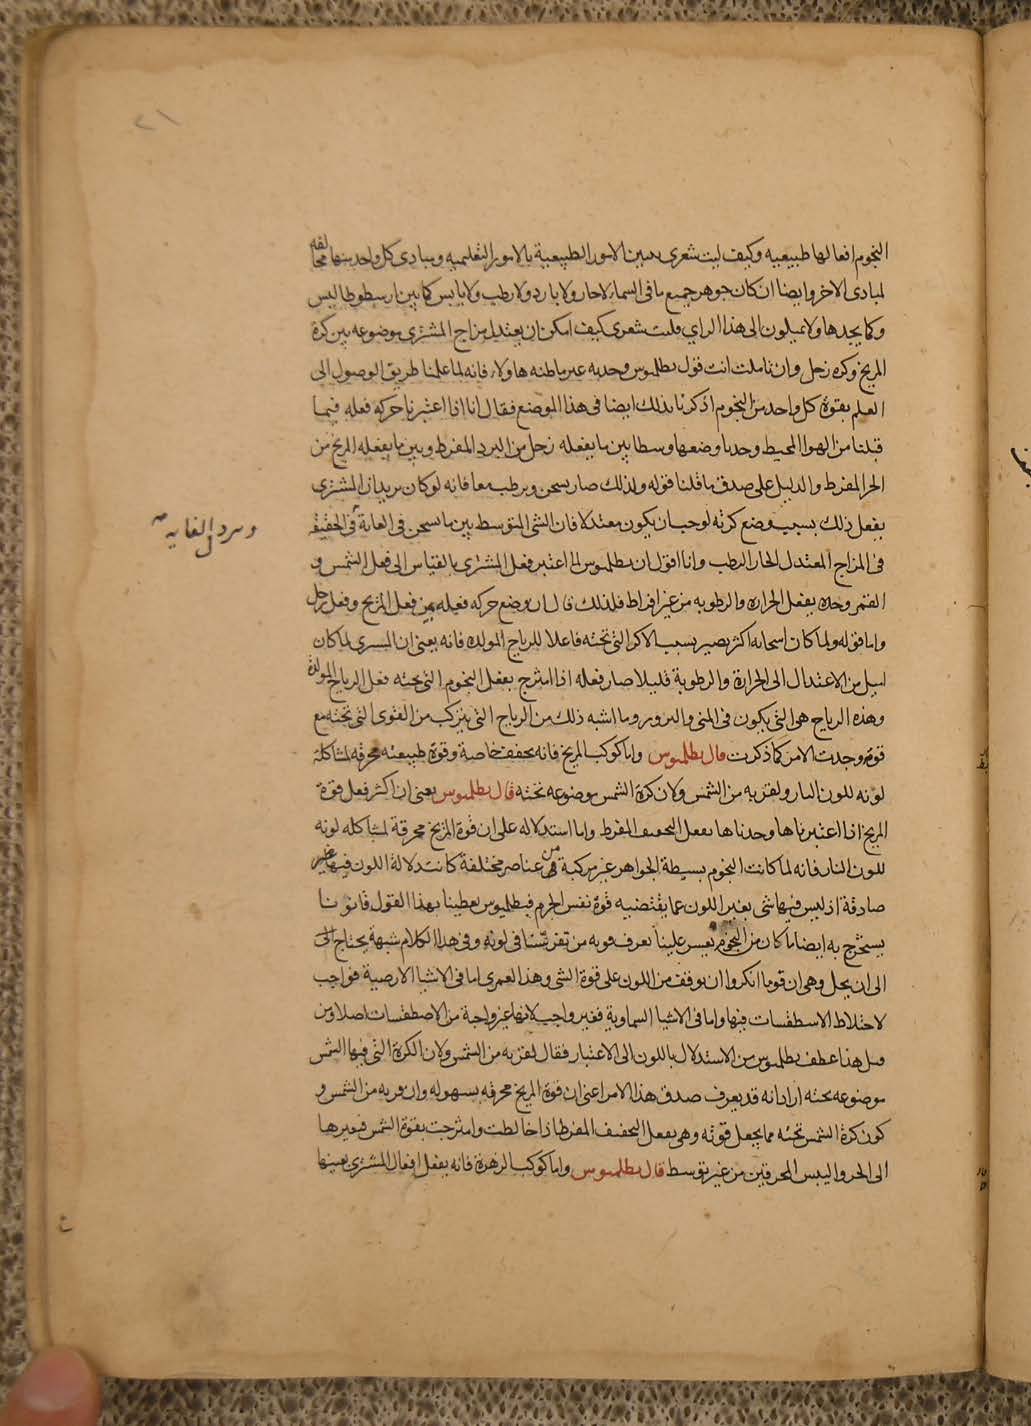 ٢١
النجوم افعالها طبيعيه وكيف ليت شعرى يبين الامور الطبيعية بالامور التعليميه ومبادى كل واحد منها مخالفه
لمبادى الاخر وايضا ان كان جوهر جميع ما فى السماء لا حار ولا بارد ولا رطب ولا يابس كما بين ارسطوطاليس
وكما يجدها ولا يميلون الى هذا الراي فليت شعرى كيف امكن ان يعتدل مزاج المشترى موضوعه بين كرة
المريخ وكره زحل وان تاملت انت قول بطلميوس وجدته غير ما ظنه هاولاء فانه لما علمنا طريق الوصول الى
العلم بقوة كل واحد من النجوم اذكرنا بذلك ايضا فى هذا الموضع فقال انا اذا اعتبرنا حركه فعله فيما
قبلنا من الهوا المحيط وجدنا وضعها وسطا بين ما يفعله زحل من البرد المفرط وبين ما يفعله المريخ من
الحر المفرط والدليل على صدق ما قلنا قوله ولذلك صار يسخن ويرطب معا فانه لو كان يريد ان المشترى
يفعل ذلك بسبب وضع كرته لوجب ان يكون معتدلا فان الشى المتوسط بين ما يسخن فى الغاية فى الحقيقه
ويبرد فى الغايه صح
فى المزاج المعتدل الحار الرطب وانا اقول ان بطلميوس لما اعتبر فعل المشترى بالقياس الى فعل الشمس و
القمر وجده يفعل الحراره والرطوبه من غير افراط فلذلك قال ان وضع حركه فعله بين فعل المريخ وفعل زحل
واما قوله ولما كان اسخانه اكثر يصير بسبب الاكر التى تحته فاعلا للرياح المولده فانه يعنى ان المشترى لما كان
اميل من الاعتدال الى الحرارة والرطوبة قليلا صار فعله اذا امتزج بفعل النجوم التى تحته فعل الرياح المولدة
وهذه الرياح هى التى يكون فى المنى والبزور وما اشبه ذلك من الرياح التى يتركب من القوى التى تحته مع
قوته وجدت الامر كما ذكرت قال بطلميوس واما كوكب المريخ فانه يجفف خاصة وقوة طبيعته محرقه لمشاكلة
لونه للون النار ولقربه من الشمس ولان كرة الشمس موضوعه تحته قال بطلميوس يعنى ان اكثر فعل قوة
المريخ اذا اعتبرناها وجدناها يفعل التجفيف المفرط واما استدلاله على ان قوة المريخ محرقة لمشاكله لونه
للون النار فانه لما كانت النجوم بسيطة الجواهر غير مركبة من عناصر مختلفة كانت دلالة اللون فيها غير
صادقة اذ ليس فيها شى يغير اللون عما يقتضيه قوة نفس الجرم فبطلميوس يعطينا بهذا القول قانونا
يستخرج به ايضا ما كان من النجوم يعسر علينا تعرف قوته من تفرسنا فى لونه وفى هذا الكلام شبهة يحتاج الى
الى ان يحل وهى ان قوما انكروا ان يوقف من اللون على قوة الشى وهذا لعمرى اما فى الاشيا الارضية فواجب
لاختلاط الاسطقسات فيها واما فى الاشيا السماوية فغير واجب لانها غير واجبة من الاصطقسات اصلا ومن
قبل هذا عطف بطلميوس من الاستدلال باللون الى الاعتبار فقال لقربه من الشمس ولان الكرة التى فيها الشمس
موضوعه تحته اراد انه قد يعرف صدق هذا الامر اعنى ان قوة المريخ محرقه بسهوله وان قربه من الشمس و
كون كرة الشمس تحته مما يجعل قوته وهى يفعل التجفيف المفرط اذا خالطت وامتزجت بقوة الشمس فيغيرها
الى الحر واليبس المحرقين من غير توسط قال بطلميوس واما كوكب الزهرة فانه يفعل افعال المشترى بعينها